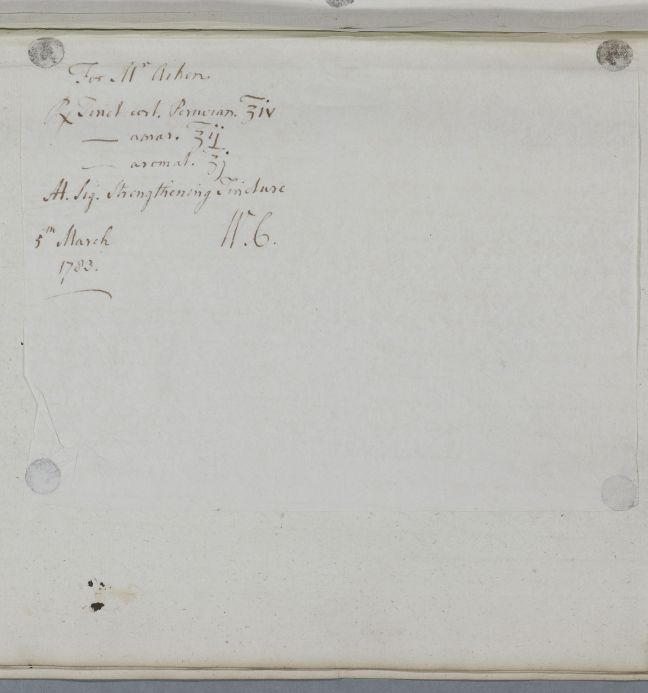 For Mr Aiken.
℞ Tinct cort. Peruvian. ℥iv
— amar. ℥ij
— aromat. ℥j
M. Sig. Strengthening Tincture
W. C.
5th March
1783.